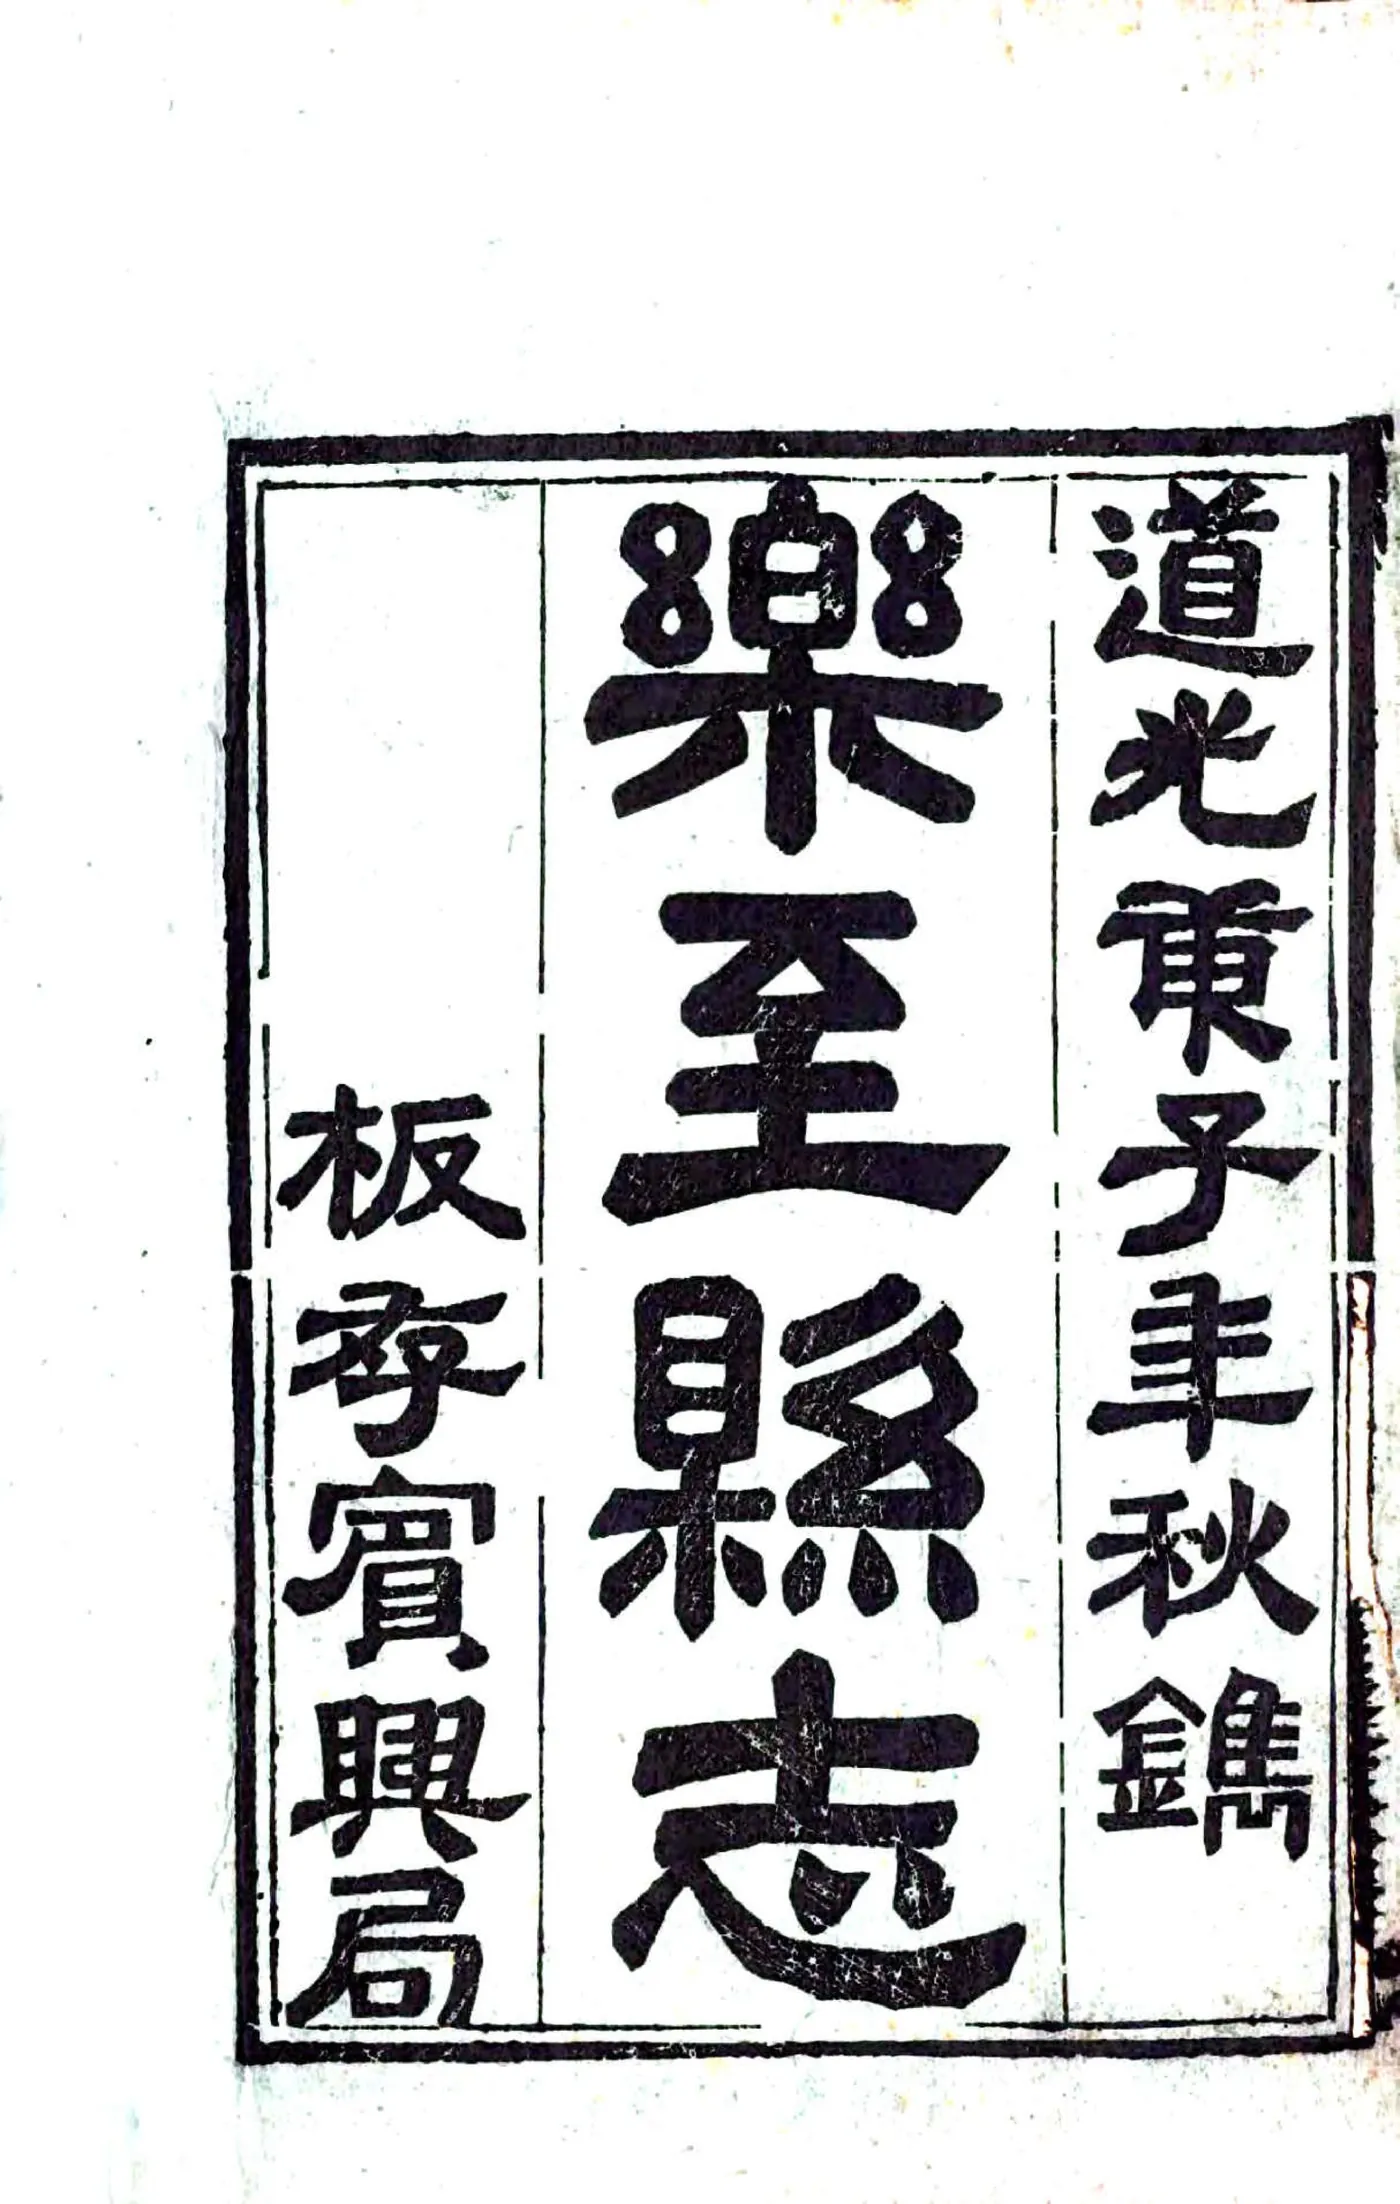 道光庚子年秋鐫
樂至縣志
板存賓興局